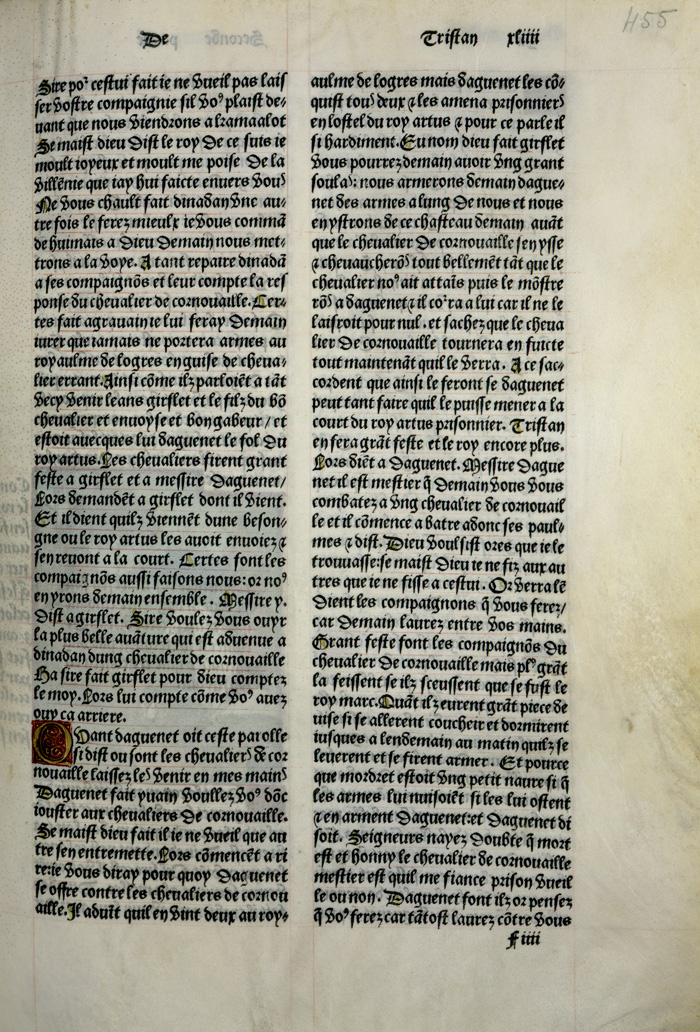 455
De
Tristan xliiii
Sire po² cestui fait ie ne vueil pas lais
ser vostre compaignie sil voꝰ plaist de⸗
uant que nous viendrons a kramaalot
Se maist dieu dist le roy De ce suis ie
moult ioyeux et moult me poise De la
villēnie que iay hui faicte enuers vous
Ne vous chault fait dinadan vne au⸗
tre fois le ferez mieulx ie vous commā
de huimais a Dieu Demain nous met⸗
trons a la voye. A tant repaire dinadā
a ses compaignōs et leur compte la res
ponse du cheualier de cornouaille. Cer⸗
tes fait agrauain ie lui feray Demain
iurer que iamais ne portera armes au
royaulme de logres en guise de cheua⸗
lier errant. Ainsi cōme ilz parloiēt a tāt
vecy venir leans girflet et le filz du bō
cheualier et enuoyse et bon gabeur / et
estoit auecques lui daguenet le fol Du
roy artus. Les cheualiers firent grant
feste a girflet et a messire Daguenet /
Lors demandēt a girflet dont il vient.
Et il dient quilz viennēt dune beson⸗
gne ou le roy artus les auoit enuoiez ⁊
sen reuont a la court. Certes font les
compaignōs aussi faisons nous: or noꝰ
en yrons demain ensemble. Messire y.
Dist a girflet. Sire voulez vous ouyr
la plus belle auāture qui est aduenue a
dinadan dung cheualier de cornouaille
Ha sire fait girflet pour dieu comptez
le moy. Lors lui compte cōme voꝰ auez
ouy ca arriere.
Quant daguenet oit ceste parolle
si dist ou sont les cheualiers de cor
nouaille laissez les venir en mes mains
Daguenet fait yuain voullez voꝰ dōc
iouster aux cheualiers De cornouaille.
Se maist dieu fait il ie ne vueil que au
tre sen entremette. Lors cōmencēt a ri
re: ie vous diray pour quoy Daguenet
se offre contre les cheualiers de cornou
aille. Il aduīt quil en vint deux au roy⸗
aulme de logres mais daguenet les cō⸗
quist tous deux ⁊ les amena prisonniers
en lostel du roy artus ⁊ pour ce parle il
si hardiment. Eu nom dieu fait girflet
vous pourrez demain auoir vng grant
soulas: nous armerons demain dague⸗
net des armes a lung De nous et nous
en ystrons de ce chasteau demain auāt
que le cheualier De cornouaille sen ysse
⁊ cheuaucherōs tout bellemēt tāt que le
cheualier noꝰ ait attaīs puis le mōstre
rōs a daguenet ⁊ il co²ra a lui car il ne le
lairroit pour nul. et sachez que le cheua
lier De cornouaille tournera en fuicte
tout maintenāt quil le verra. A ce sac⸗
cordent que ainsi le feront se daguenet
peut tant faire quil le puisse mener a la
court du roy artus prisonnier. Tristan
en fera grāt feste et le roy encore plus.
Lors diēt a Daguenet. Messire Dague
net il est mestier q̄ Demain vous vous
combatez a vng cheualier de cornouail
le et il cōmence a batre adonc ses paul⸗
mes ⁊ dist. Dieu voulsist ores que ie le
trouuasse: se maist Dieu ie ne fiz aux au
tres que ie ne fisse a cestui. Or verra lē
Dient les compaignons q̄ vous ferez /
car Demain laurez entre vos mains.
Grant feste font les compaignōs Du
cheualier De cornouaille mais plꝰ grāt
la feissent se ilz sceussent que se fust le
roy marc. Quāt ilz eurent grāt piece de
uise si se allerent coucheir et dormirent
iusques a lendemain au matin quilz se
leuerent et se firent armer. Et pource
que mordret estoit vng petit naure si q̄
les armes lui nuisoiēt si les lui ostent
⁊ en arment Daguenet: et Daguenet di
soit. Seigneurs nayez Doubte q̄ mort
est et honny le cheualier de cornouaille
mestier est quil me fiance prison vueil
le ou non. Daguenet font ilz or pensez
q̄ voꝰ ferez car tātost laurez cōtre vous
F iiii